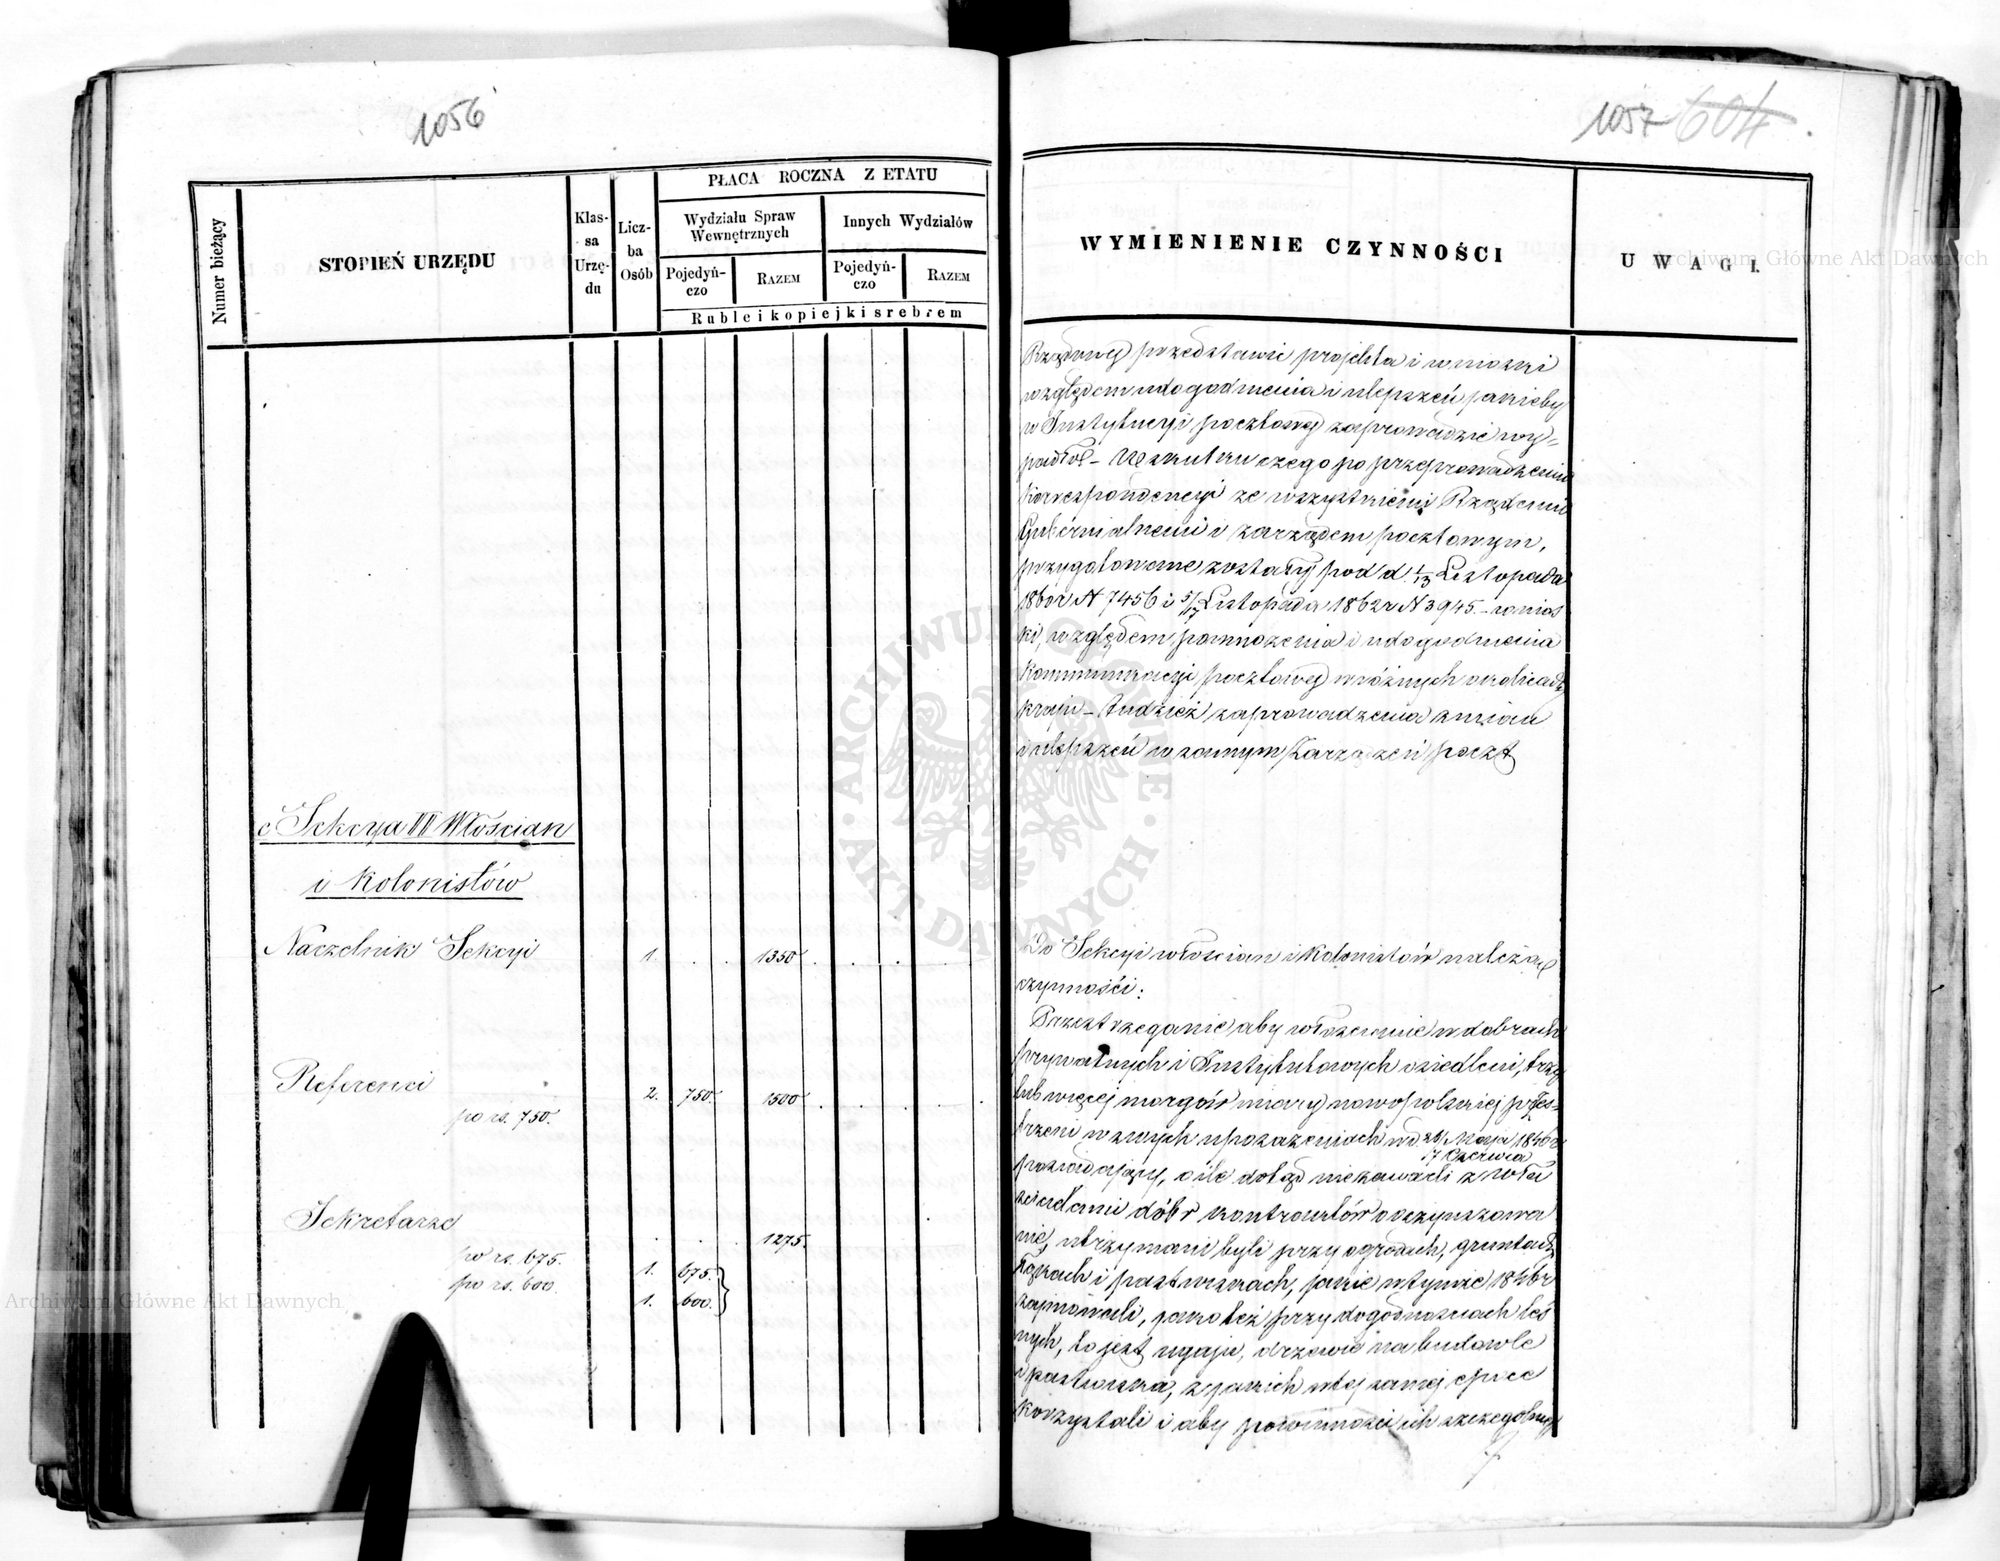 1056
Numer bieżący
STOPIEŃ URZĘDU
Klas-
sa
Urzę-
du
Licz-
ba
Osób
PŁACA ROCZNA Z ETATU
Wydziału Spraw
Wewnętrznych
Innych Wydziałów
Pojedyń-
czo
RAZEM
Pojedyń-
czo
RAZEM
Ruble i kopiejki srebrem
c Sekcya III Włościan
i Kolonistów
Naczelnik Sekcyi 1. 1350
Referenci
po rs. 750. 2. 750. 1500
Sekretarze 1275.
po rs. 675. 1. 675.
po rs. 600. 1. 600.
1057 604
WYMIENIENIE CZYNNOŚCI
UWAGI.
Rządowej przedstawić projekta i wnioski
względem udogodnienia i ulepszeń jakieby
w Instytucyi pocztowej zaprowadzić wy=
padło – W skutku czego po przeprowadzeniu
korrespondencyi ze wszystkiemi Rządami
Gubernialnemi i zarządem pocztowym,
przygotowane zostały pod d. 1/13 Listopada
1860r N 7456 i 5/17 Listopada 1862r N 3945. – wnios
ki, względem pomnożenia i udogodnienia
kommunikacyi pocztowej w różnych okolicach
kraju – tudzież zaprowadzenia zmian
i ulepszeń w samym Zarządzeń poczt
Do Sekcyi włościan i Kolonistów należą
czynności:
Przestrzeganie aby włościanie w dobrach
prywatnych i Instytutowych osiedleni, trzy
lub więcej morgów miary nowopolskiej przes=
trzeni w swych uposażeniach w d. 26 Maja/7 Czerwca 1846 r
posiadający, o ile dotąd nie zawarli z wła
ścicielami dóbr kontraktów o oczynszowa
nie, utrzymani byli przy ogrodach, gruntach
łąkach i pastwiskach, jakie w tymże 1846 r
zajmowali, jako też przy dogodnościach leś
nych, to jest ugaju, drzewie na budowle
i pastwiska, z jakich w tej samej epoce
korzystali i aby powinności ich szczególnej
ARCHIWUM GŁÓWNE AKT DAWNYCH
Archiwum Główne Akt Dawnych
Archiwum Główne Akt Dawnych